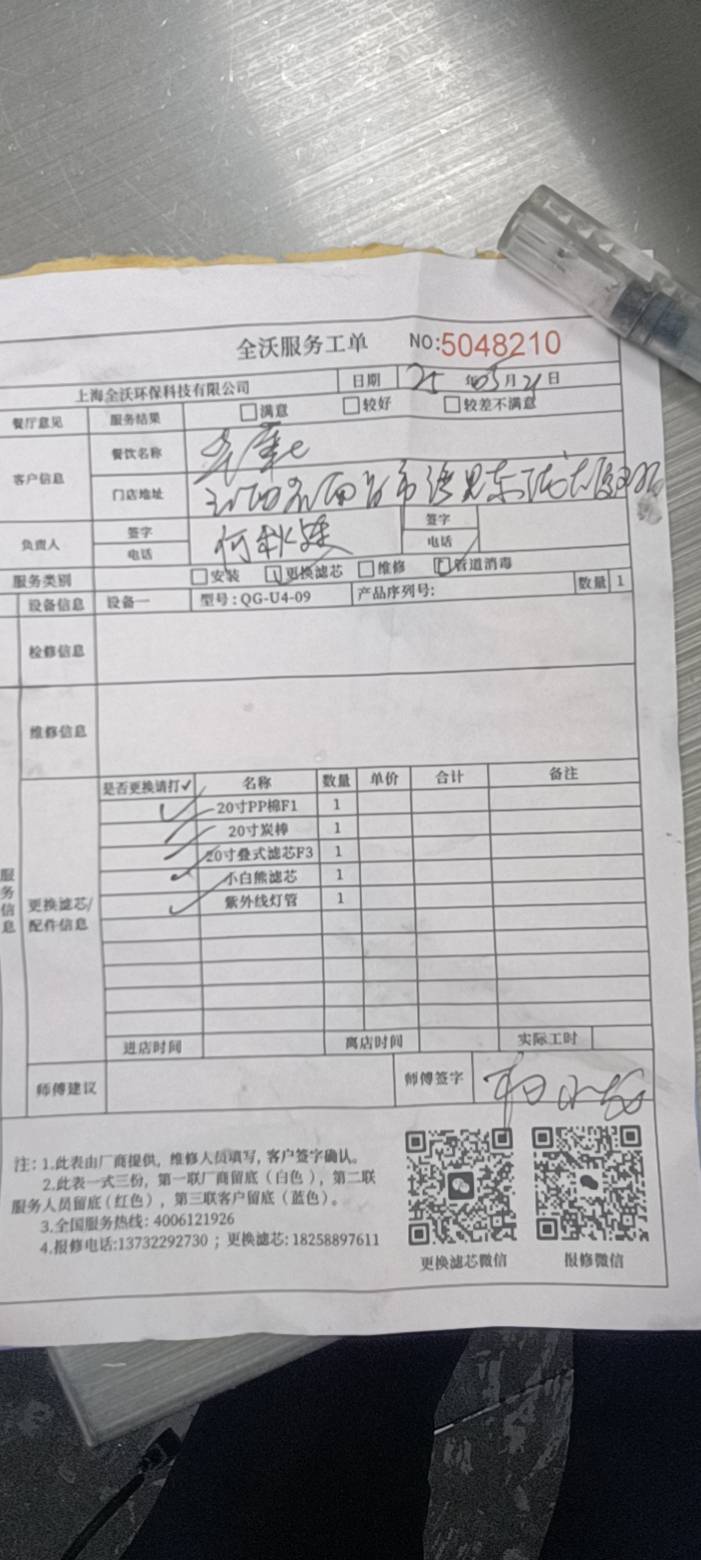 全沃服务工单 NO:5048210
上海全沃环保科技有限公司 日期 25年05月21日
餐厅意见 服务结果 满意 较好 较差不满意
客户信息 餐饮名称
门店地址
负责人 签字 何 签字
电话 电话
服务类别 安装 更换滤芯 维修 管道消毒
设备信息 设备一 型号:QG-U4-09 产品序列号: 数量 1
检修信息
维修信息
服务信息
更换滤芯/配件信息
是否更换请打✓ 名称 数量 单价 合计 备注
✓ 20寸PP棉F1 1
✓ 20寸炭棒 1
✓ 20寸叠式滤芯F3 1
✓ 小白熊滤芯 1
✓ 紫外线灯管 1
进店时间 离店时间 实际工时
师傅建议 师傅签字
注:1.此表由厂商提供,维修人员填写,客户签字确认。
2.此表一式三份,第一联厂商留底(白色),第二联
服务人员留底(红色),第三联客户留底(蓝色)。
3.全国服务热线:4006121926
4.报修电话:13732292730;更换滤芯:18258897611
更换滤芯微信 报修微信